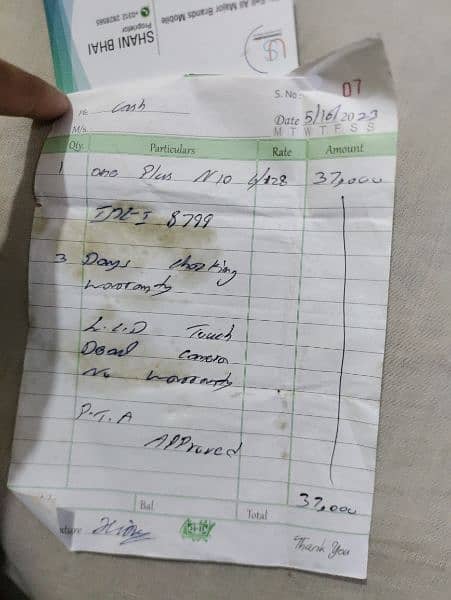 Sell All Major Brands Mobile
SHANI BHAI
Proprietor
S. No. 07
Cash
Date 5/16/2023
M/s.
M T W T F S S
Qty. Particulars Rate Amount
1 one Plus N10 6/128 37,000
IMEI 8799
3 Days checking
warranty
L.C.D Touch
Dead camera
No warranty
P.T.A
APProved
37,000
Bal Total
Thank You